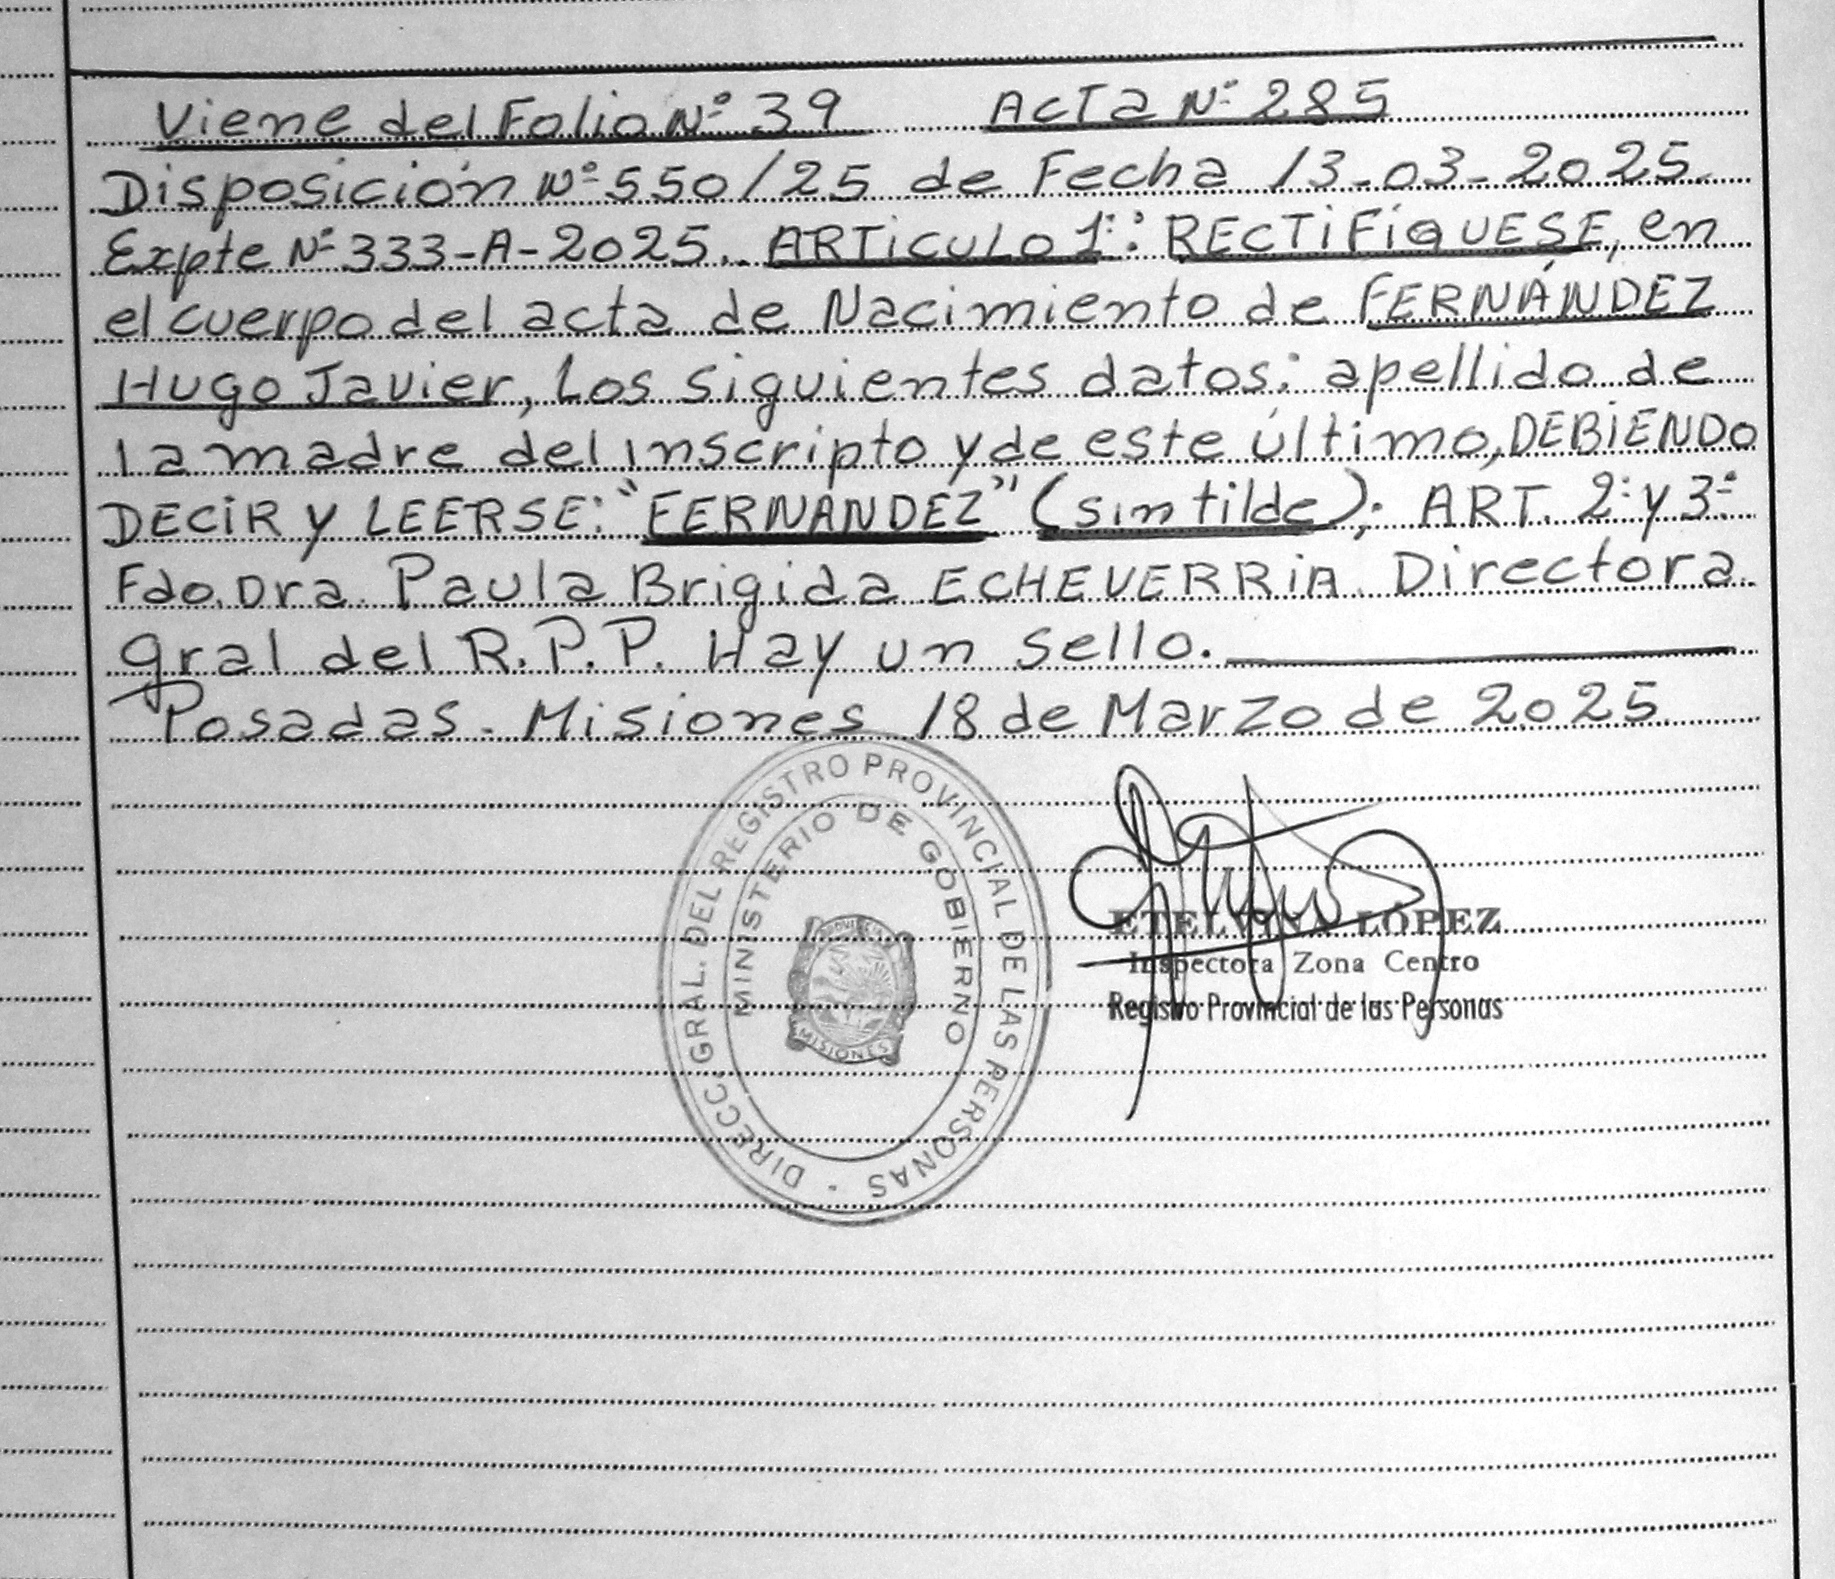 Viene del Folio Nº 39 Acta Nº 285
Disposición Nº 550/25 de Fecha 13-03-2025.
Expte Nº 333-A-2025.. ARTiCULO 1º: RECTiFiQUESE, en
el cuerpo del acta de Nacimiento de FERNÁNDEZ
Hugo Javier, Los siguientes datos: apellido de
la madre del inscripto y de este último, DEBiENDO
DECiR y LEERSE: "FERNANDEZ" (sin tilde); ART. 2º y 3º
Fdo. Dra. Paula Brigida ECHEVERRiA. Directora
gral del R.P.P. Hay un sello.
Posadas - Misiones 18 de Marzo de 2025
DIRECC. GRAL. DEL REGISTRO PROVINCIAL DE LAS PERSONAS
MINISTERIO DE GOBIERNO
PROVINCIA
MISIONES
ETELVINA LÓPEZ
Inspectora Zona Centro
Registro Provincial de las Personas